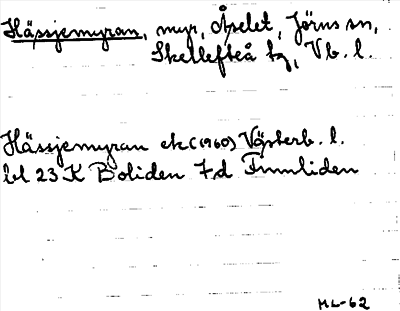 Hässjemyran, myr, Åselet, Jörns sn,
Skellefteå tg, Vb. l.
Hässjemyran ek (1960) Västerb. l.
bl 23 K Boliden 7d Finnliden
ML-62